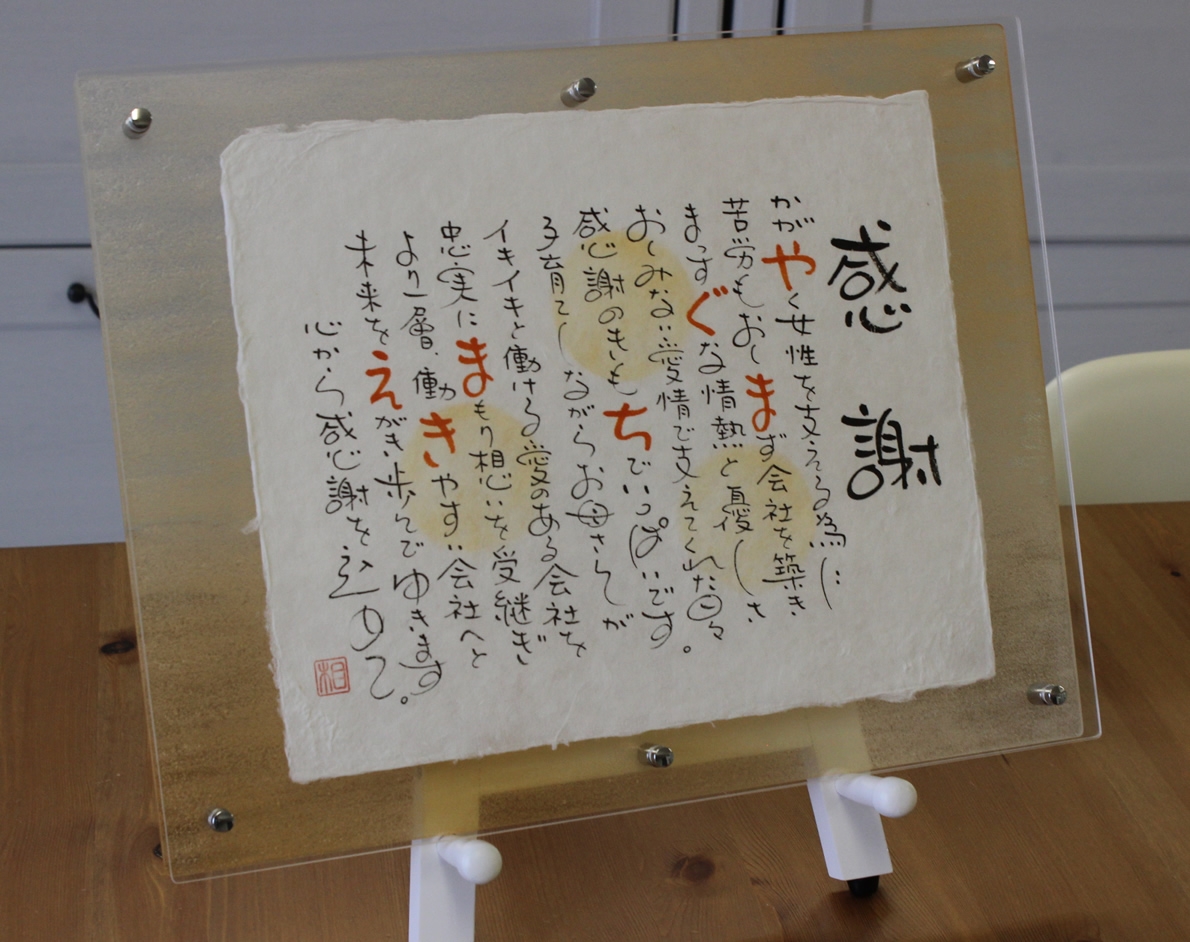 感謝
かがやく女性を支える為に
苦労もおしまず会社を築き
まっすぐな情熱と優しさ
おしみない愛情で支えてくれた日々
感謝のきもちでいっぱいです。
子育てしながらお母さんが
イキイキと働ける愛のある会社を
忠実にまもり想いを受継ぎ
より一層、働きやすい会社へと
未来をえがき歩んでゆきます
心から感謝を込めて。
相